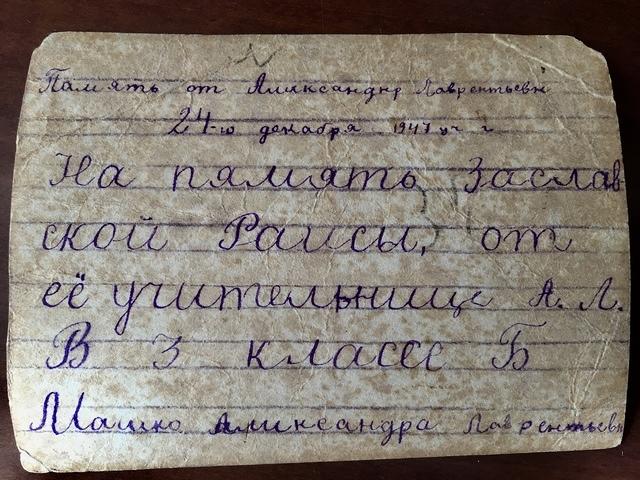 Память от Александр Лаврентьевн
24-го декабря 1947 г
На пямять Заслав
ской Раисы, от
её учительнице А. Л.
В 3 классе Б
Машко Александра Лаврентьевн